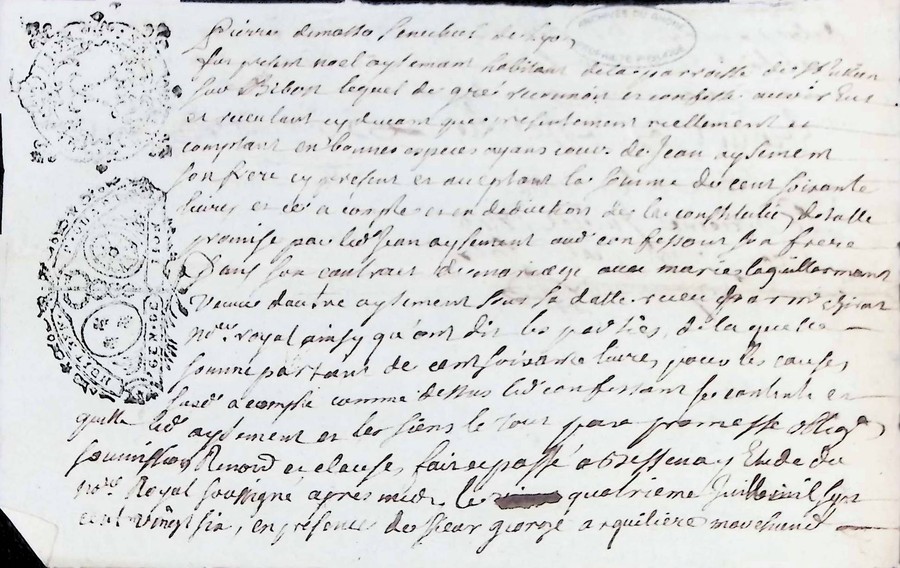 Pierre demasso Senechal de Lyon
fut présent noel aysemant habitant de la parroisse de St Julien
sur Bibost lequel de gré reconnoit et confesse avoir Eue
et receu tant cydevant que presentement reellement et
comptant en bonnes especes ayans cours de Jean aysement
son frere cy present et acceptant la somme de cent soixante
livres et ce a compte et en deduction de la constitution dotalle
promise par led Jean aysement aud confessant son frere
Dans son contrait de mariage avec marie laguillermant
veuve dautre aysement sous sa datte receu par me
nore royal ainsy qu'ont dit les parties, de laquelle
somme partant de cent soixante livres pour les causes
susd a compte comme dessus led confessant se contente et
quitte led aysement et les siens le tout par promesse oblige
soumission Renond et clauses, fait et passé a Bessenay Etude du
nore Royal soussigné apres midy le quatrieme Juillet mil sept
cent vingt six, en presence de sieur george arquiliere marchand
ARCHIVES DU RHONE
GENERAL